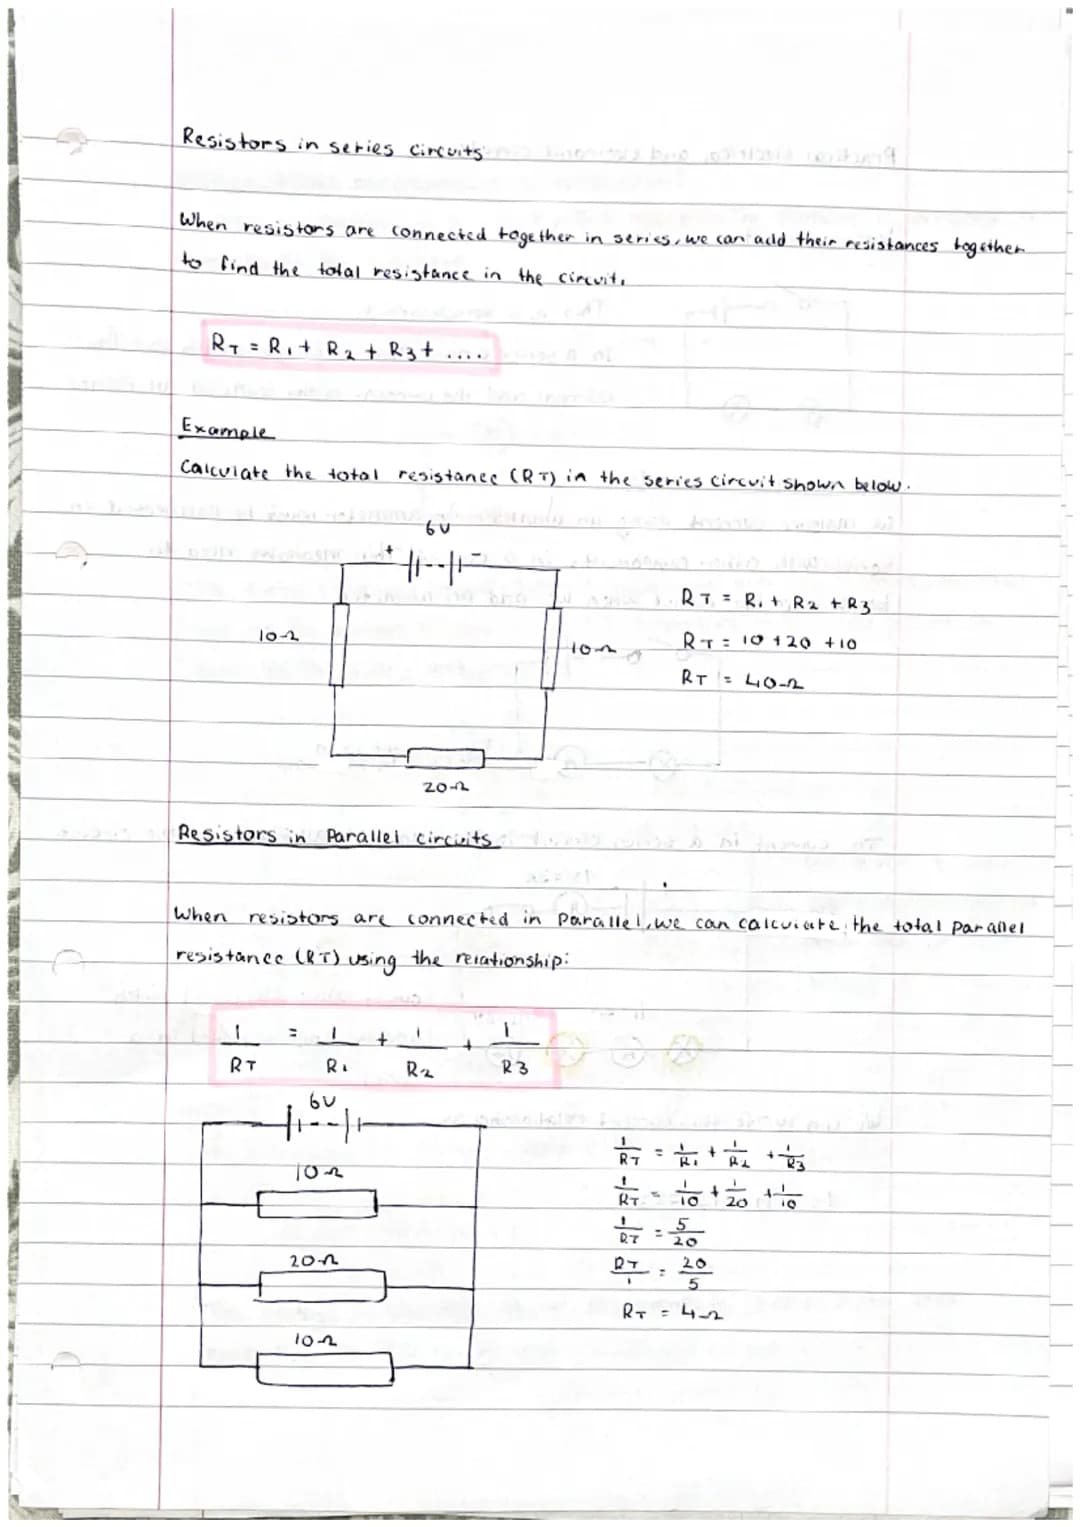 Resistors in series circuits
When resistors are connected together in series, we can add their resistances together
to find the total resistance in the circuit.
RT = R1 + R2 + R3 + ....
Example
Calculate the total resistance (RT) in the series circuit shown below.
6V
+ -
10Ω
10Ω
20Ω
RT = R1 + R2 + R3
RT = 10 + 20 + 10
RT = 40Ω
Resistors in Parallel circuits
When resistors are connected in parallel, we can calculate the total parallel
resistance (RT) using the relationship:
1/RT = 1/R1 + 1/R2 + 1/R3
6V
10Ω
20Ω
10Ω
1/RT = 1/R1 + 1/R2 + 1/R3
1/RT = 1/10 + 1/20 + 1/10
1/RT = 5/20
RT/1 = 20/5
RT = 4Ω